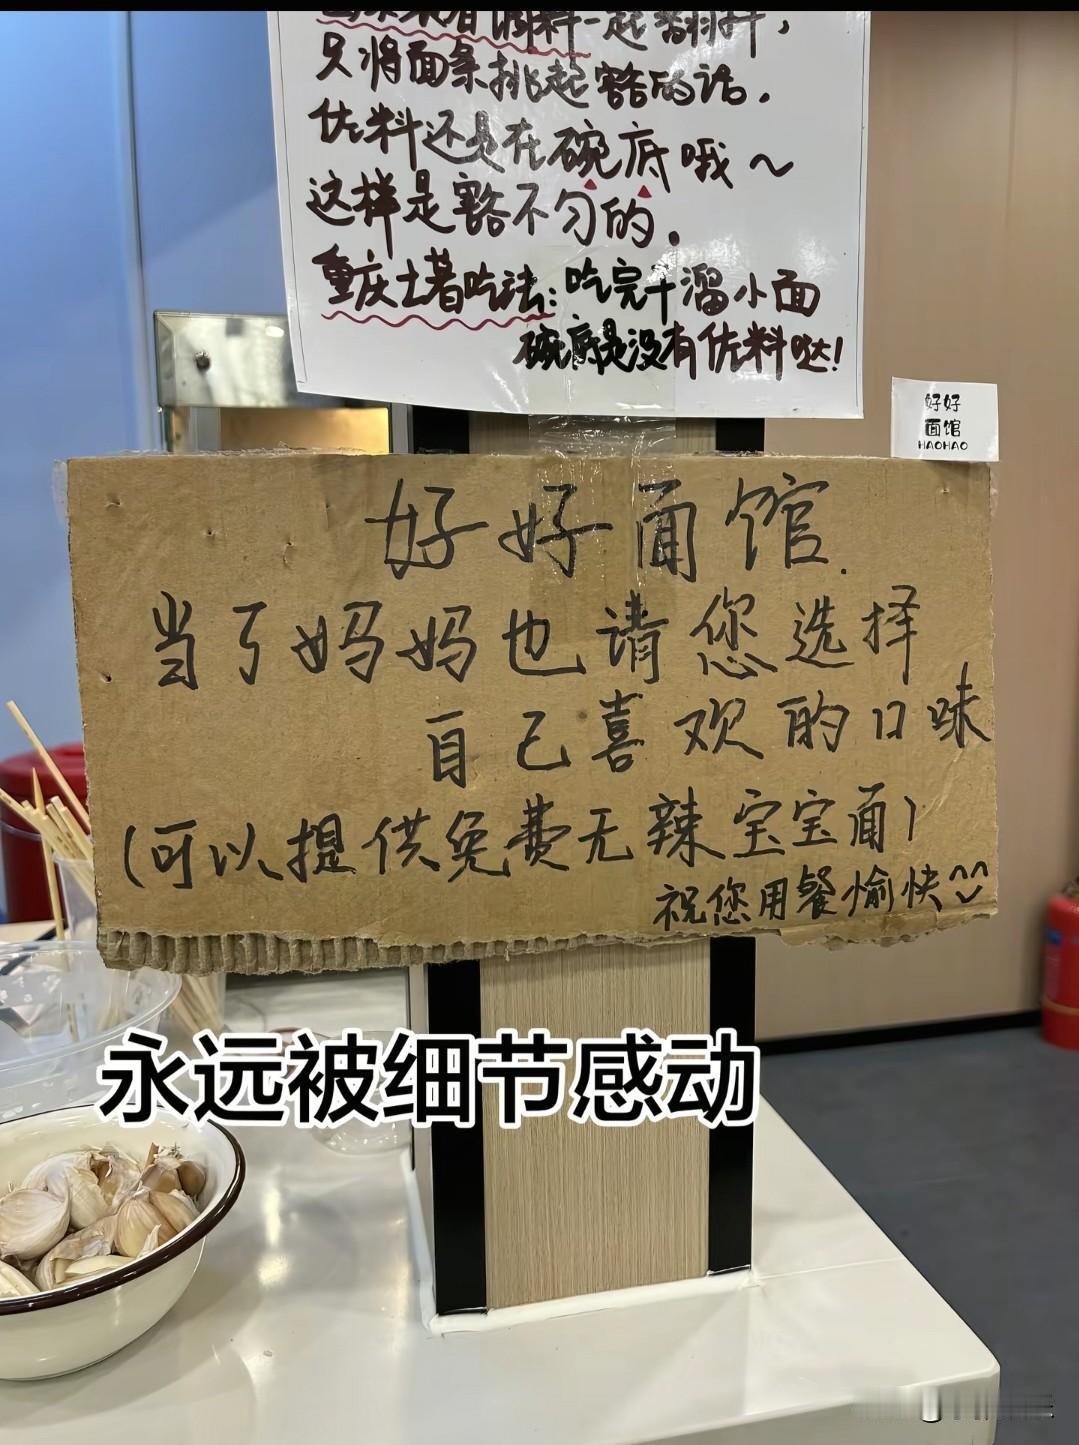 一起豁拌，
只将面条挑起豁的话．
佐料还是在碗底哦～
这样是豁不匀的．
重庆土著吃法：吃完干溜小面
碗底是没有佐料哒！
好好
面馆
HAOHAO
好好面馆．
当了妈妈也请您选择
自己喜欢的口味
（可以提供免费无辣宝宝面）
祝您用餐愉快^^
永远被细节感动